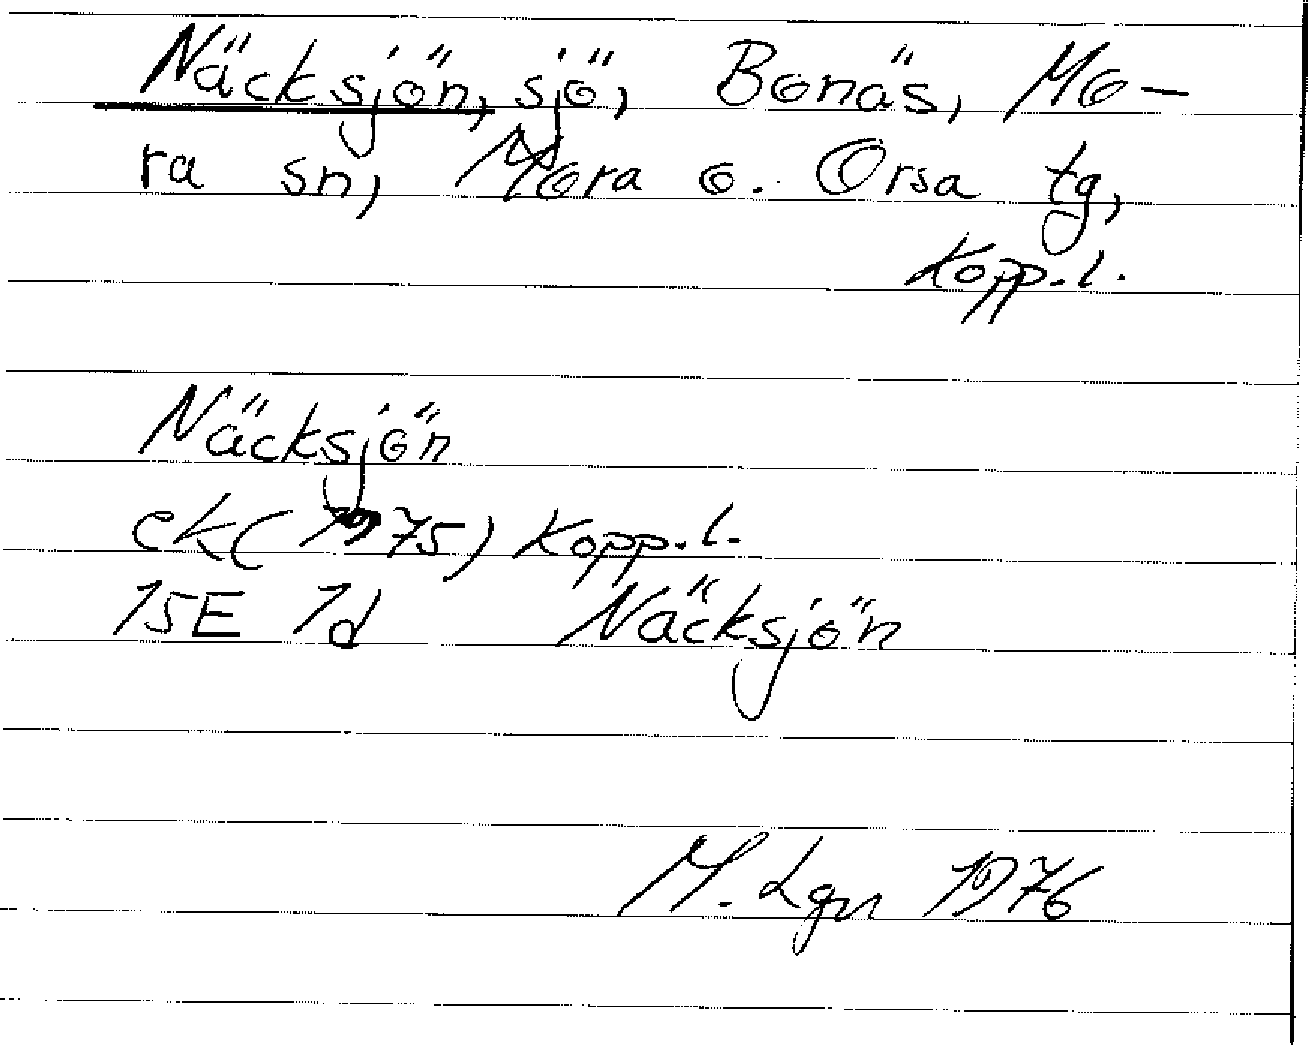 Näcksjön, sjö, Bonäs, Mo-
ra sn, Mora o. Orsa tg,
Kopp.l.
Näcksjön
ek(1975) Kopp.l.
15E 1d Näcksjön
M. Lgn 1976